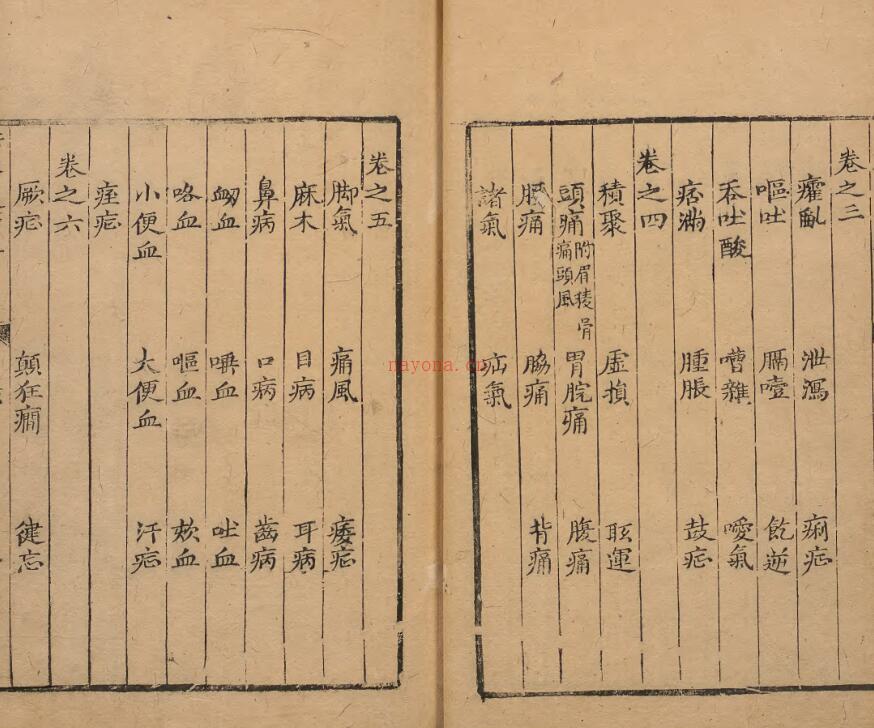 卷之三
癨亂 泄瀉 痢疟
嘔吐 膈噎 飥逆
吞吐酸 嘈雜 噯氣
痞滿 腫脹 鼓疟
卷之四
積聚 虛損 眩運
頭痛 附眉稜骨痛頭風 胃脘痛 腹痛
腰痛 脇痛 背痛
諸氣 疝氣
卷之五
脚氣 痛風 痿疟
麻木 目病 耳病
鼻病 口病 齒病
衂血 唾血 吐血
咯血 嘔血 欬血
小便血 大便血 汗疟
痓疟
卷之六
厥疟 顛狂癇 健忘
nayona.cn